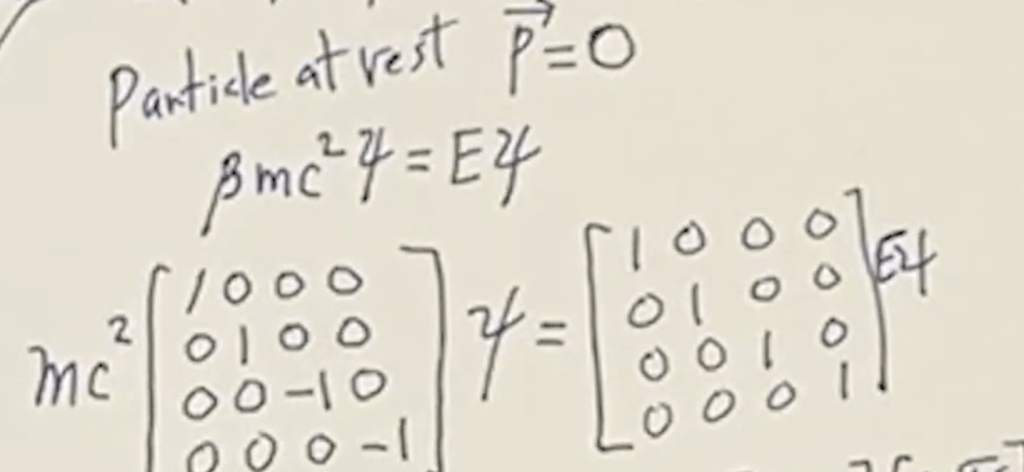 Particle at rest p⃗=0
βmc²ψ=Eψ
mc² [1 0 0 0; 0 1 0 0; 0 0 -1 0; 0 0 0 -1] ψ = [1 0 0 0; 0 1 0 0; 0 0 1 0; 0 0 0 1] Eψ